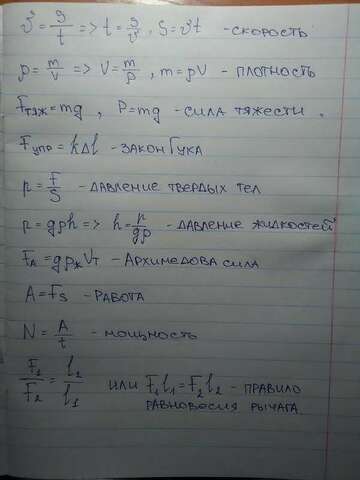 v = S/t => t = S/v, S = vt - скорость
ρ = m/V => V = m/ρ, m = ρV - плотность
Fтяж = mg, P = mg - сила тяжести.
Fупр = kΔl - закон Гука
p = F/S - давление твердых тел
p = gρh => h = p/gρ - давление жидкостей
FA = gρжVт - Архимедова сила
A = Fs - работа
N = A/t - мощность
F1/F2 = l2/l1 или F1l1 = F2l2 - правило
равновесия рычага